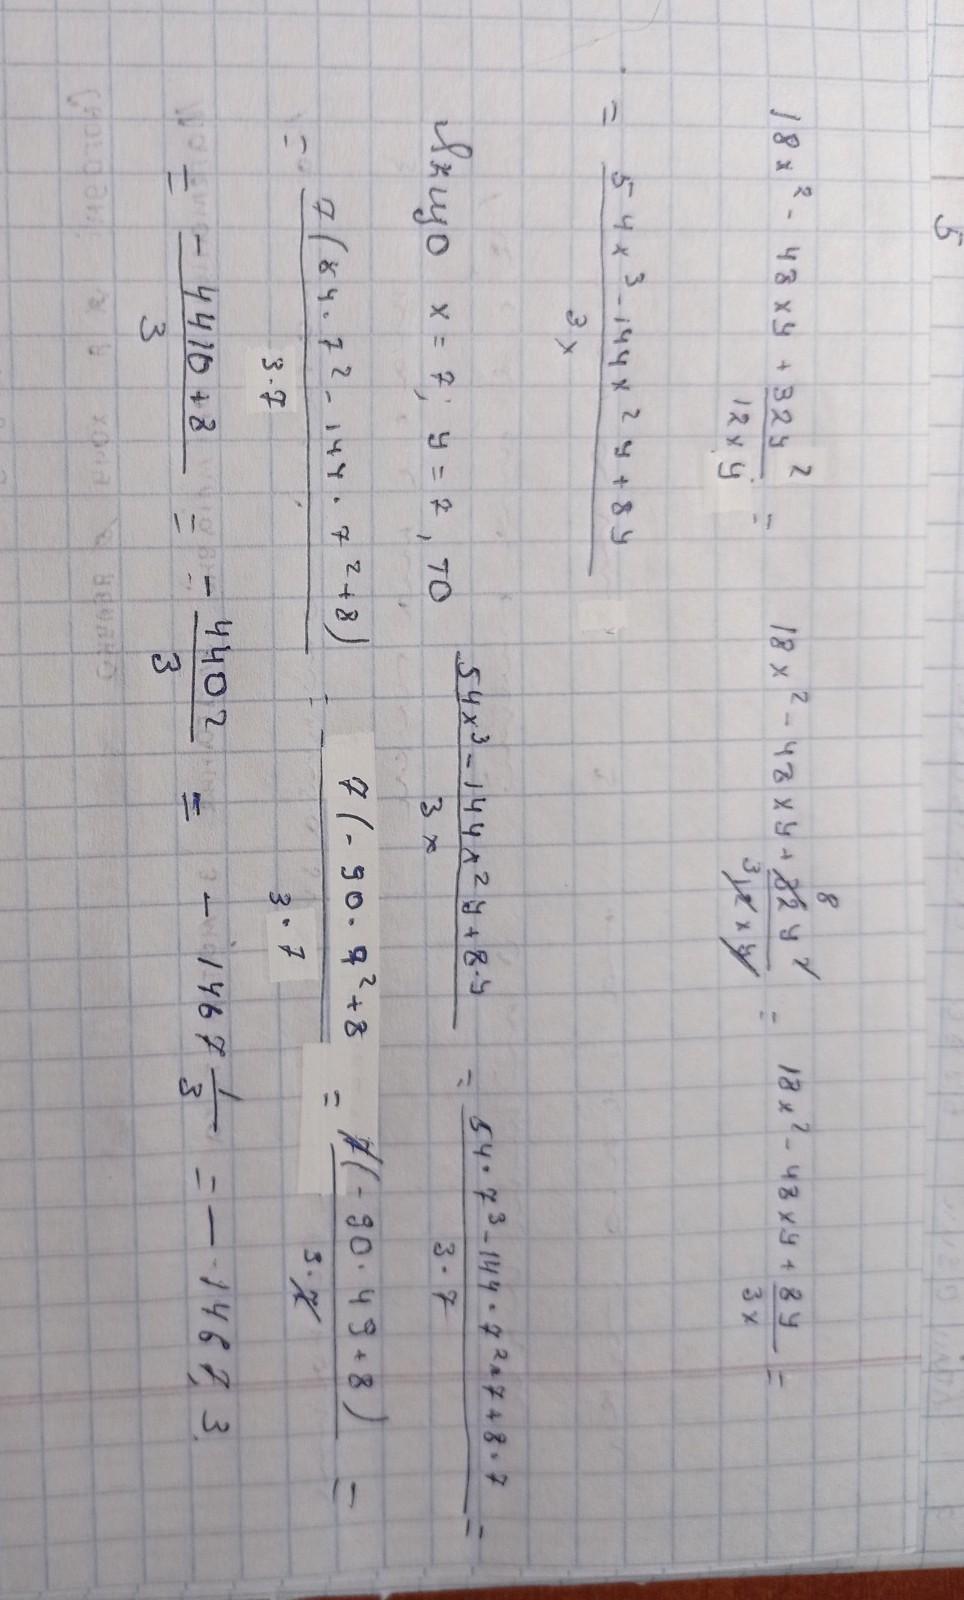 5
18x² - 48xy + 32y²/12xy = 18x² - 48xy + 32y²/12xy = 18x² - 48xy + 8y/3x =
8
3
= 54x³ - 144x²y + 8y/3x
Якщо x = 7, y = 7, то 54x³ - 144x²y + 8·y/3x = 54·7³ - 144·7²·7 + 8·7/3·7 =
= 7(54·7² - 144·7² + 8)/3·7 = 7(-90·7² + 8/3·7 = 7(-90·49 + 8)/3·7 =
= -4410+8/3 = -4402/3 = -1467 1/3 = -1467,3